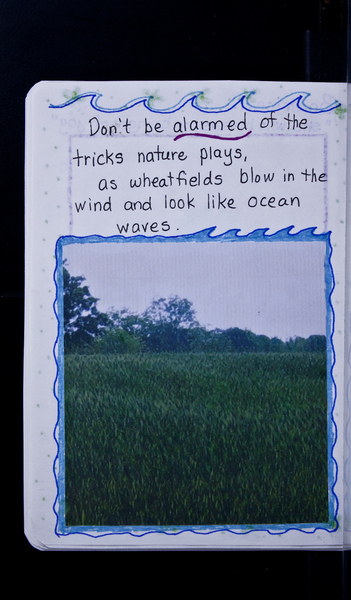 Don't be alarmed of the
tricks nature plays,
as wheatfields blow in the
wind and look like ocean
waves.